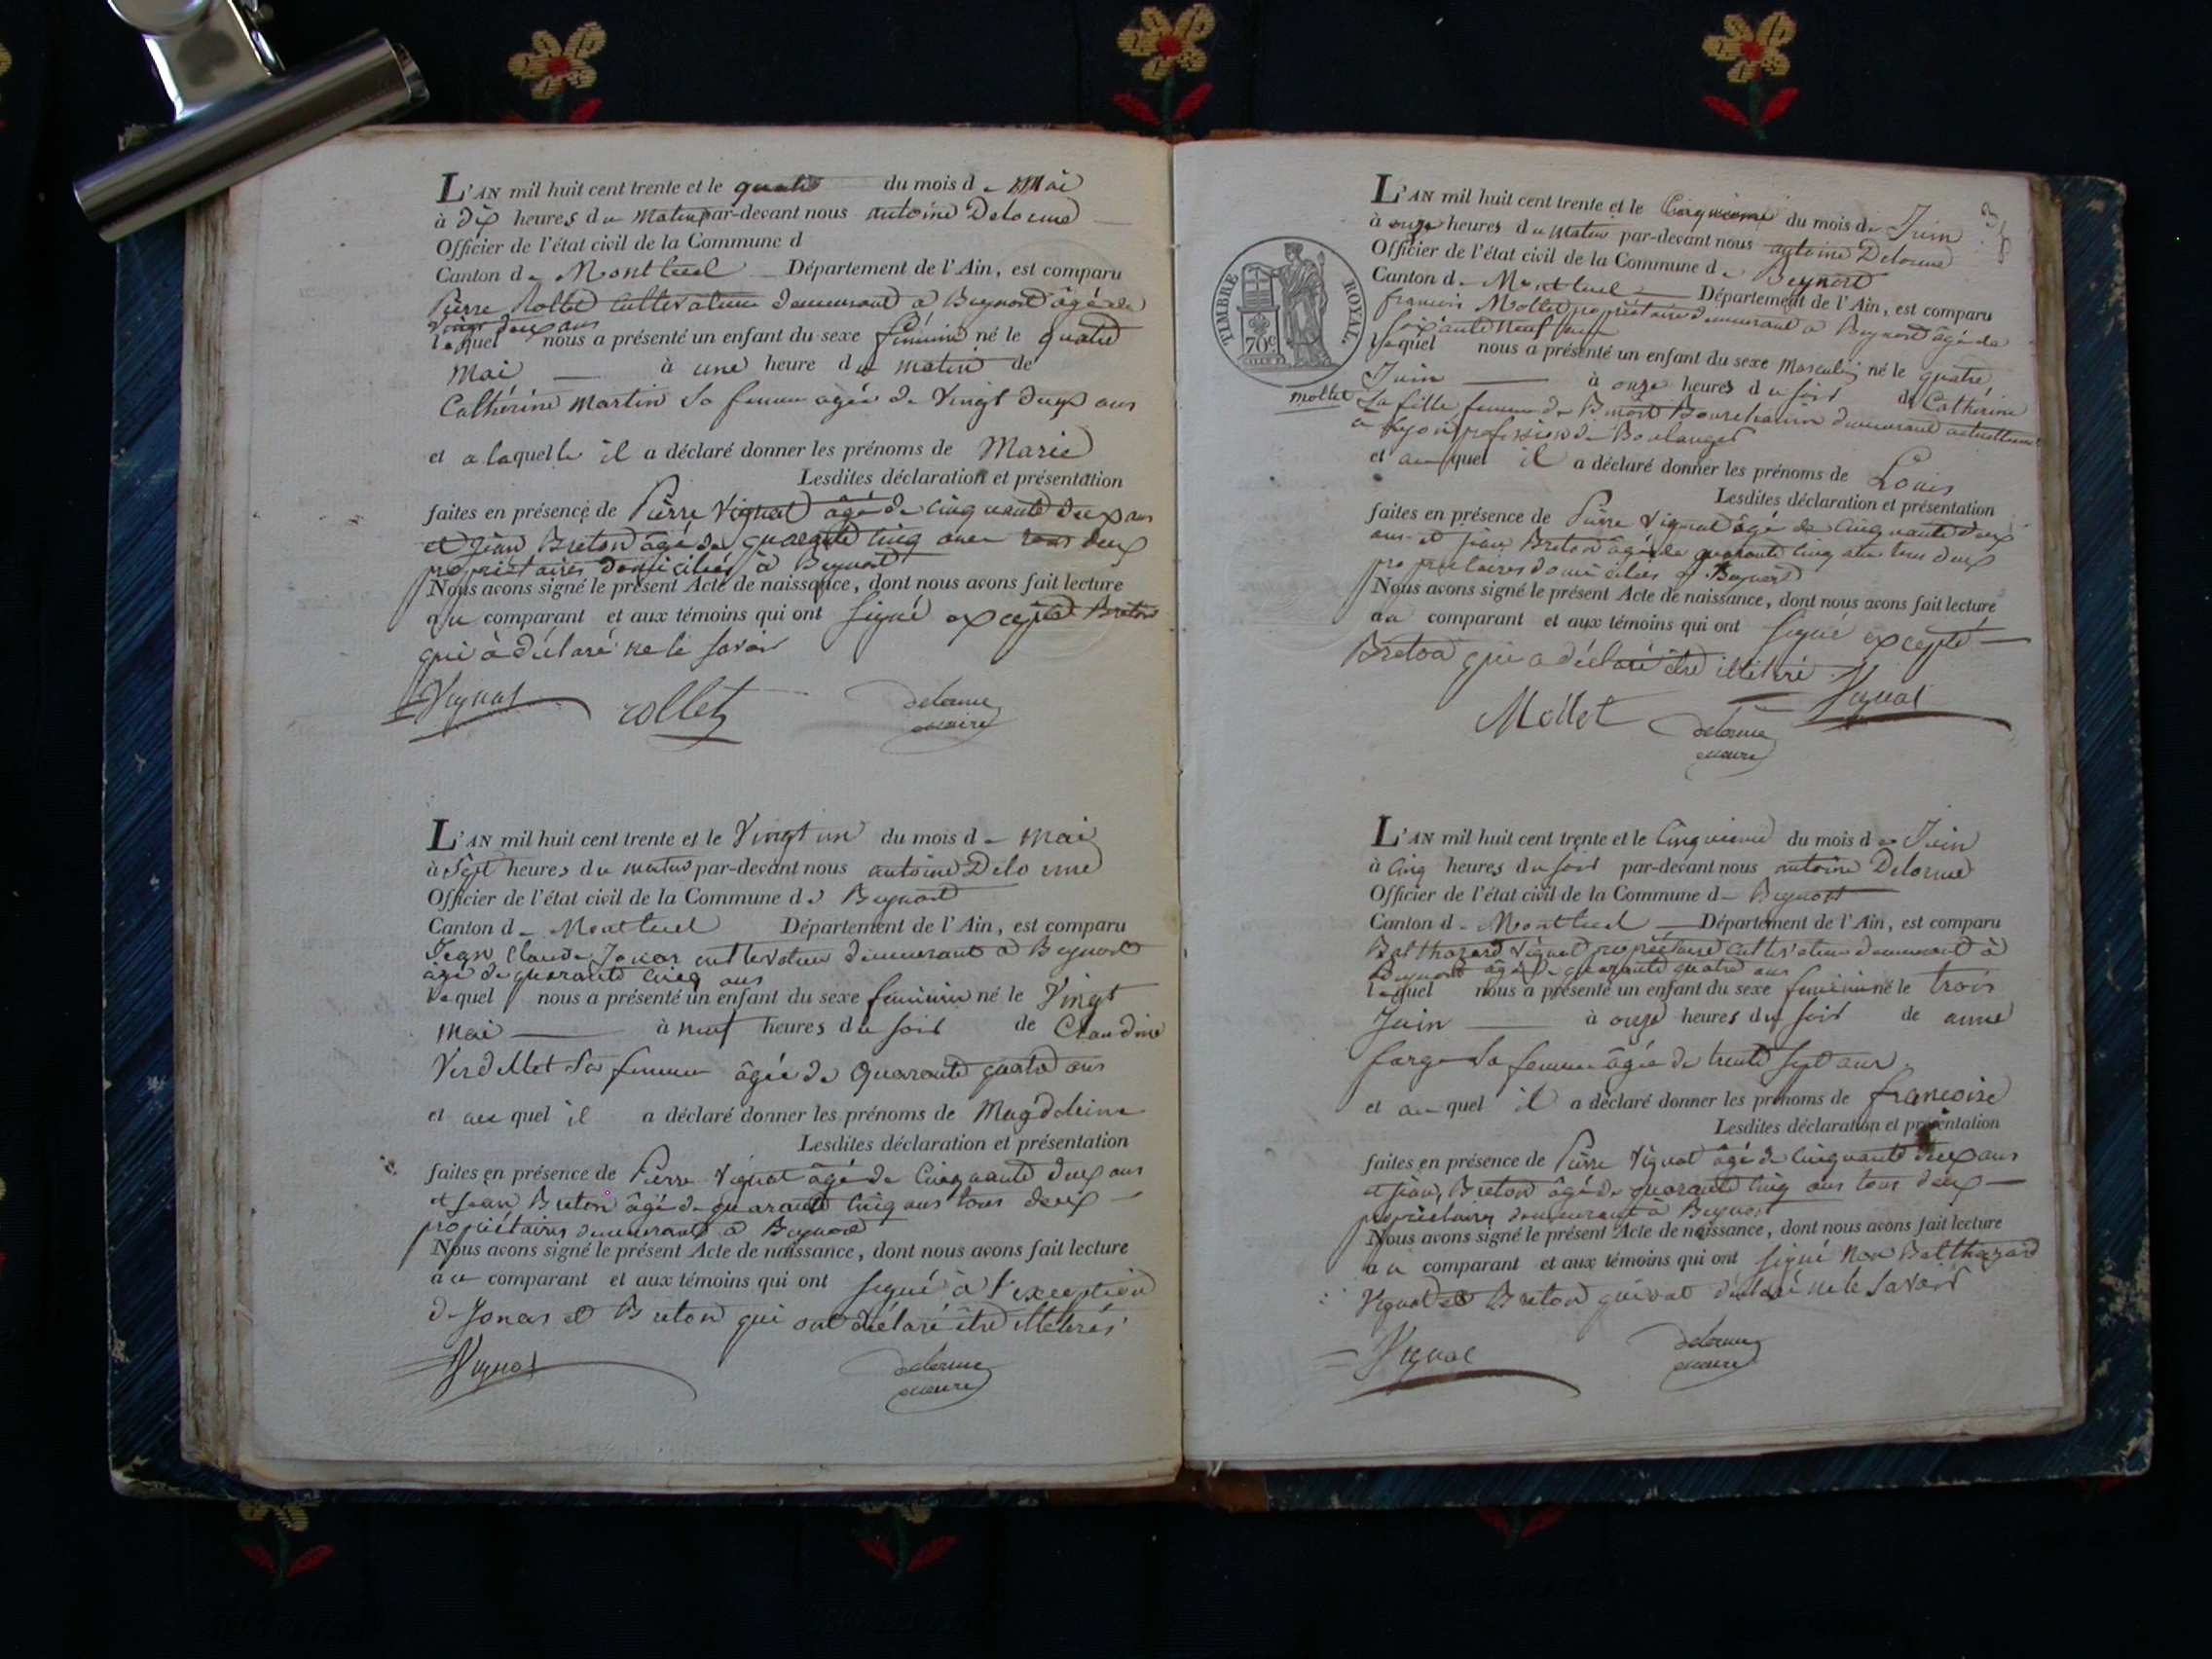 L'AN mil huit cent trente et le quatre du mois de Mai
à dix heures du matin par-devant nous antoine Delorme
Officier de l'état civil de la Commune d
Canton de Montluel Département de l'Ain, est comparu
Pierre Rollet Cultivateur demeurant a Beynost âgé de
vingt deux ans
lequel nous a présenté un enfant du sexe féminin né le quatre
Mai à une heure du matin de
Cathérine Martin Sa femme agée de Vingt deux ans
et a laquelle il a déclaré donner les prénoms de Marie
Lesdites déclaration et présentation
faites en présence de Pierre Vignat âgé de Cinquante deux ans
et Jean Breton âgé de quarante cinq ans tous deux
propriétaires domiciliés à Beynost
Nous avons signé le présent Acte de naissance, dont nous avons fait lecture
au comparant et aux témoins qui ont signé excepté Breton
qui à déclaré ne le savoir
Vignat rollet delorme
maire
L'AN mil huit cent trente et le Vingt un du mois de mai
à Sept heures du matin par-devant nous antoine Delorme
Officier de l'état civil de la Commune de Beynost
Canton de Montluel Département de l'Ain, est comparu
Jean Claude Jonas cultivateur demeurant a Beynost
âgé de quarante cinq ans
lequel nous a présenté un enfant du sexe feminin né le Vingt
Mai à neuf heures du soir de Claudine
Verdellet Sa femme âgée de quarante quatre ans
et au quel il a déclaré donner les prénoms de Magdeleine
Lesdites déclaration et présentation
faites en présence de Pierre Vignat âgé de Cinquante deux ans
et Jean Breton âgé de quarante cinq ans tous deux
propriétaires demeurant a Beynost
Nous avons signé le présent Acte de naissance, dont nous avons fait lecture
au comparant et aux témoins qui ont signé à l'exception
de Jonas et Breton qui ont déclaré être illetérés
Vignat delorme
maire
TIMBRE ROYAL.
70c
mollet
L'AN mil huit cent trente et le Cinquieme du mois de Juin
à onze heures du matin par-devant nous antoine Delorme
Officier de l'état civil de la Commune de Beynost
Canton de Montluel Département de l'Ain, est comparu
francois Mollet propriétaire demeurant a Beynost âgé de
soixante neuf ans
lequel nous a présenté un enfant du sexe Masculin né le quatre
Juin à onze heures du soir de Catherine
Sa fille femme de Benoit demeurant actuellement
a Lyon profession de Boulanger
et au quel il a déclaré donner les prénoms de Louis
Lesdites déclaration et présentation
faites en présence de Pierre Vignat âgé de Cinquante deux
ans et jean Breton âgé de quarante cinq ans tous deux
propriétaires domiciliés a Beynost
Nous avons signé le présent Acte de naissance, dont nous avons fait lecture
au comparant et aux témoins qui ont signé excepté
Breton qui a déclaré être illétéré
Mollet delorme Vignat
maire
L'AN mil huit cent trente et le Cinquieme du mois de Juin
à Cinq heures du soir par-devant nous antoine Delorme
Officier de l'état civil de la Commune de Beynost
Canton de Montluel Département de l'Ain, est comparu
Balthazard Vignat propriétaire cultivateur demeurant à
Beynost âgé de quarante quatre ans
lequel nous a présenté un enfant du sexe feminin né le trois
Juin à onze heures du soir de anne
farge Sa femme âgée de trente sept ans
et au quel il a déclaré donner les prénoms de francoise
Lesdites déclaration et présentation
faites en présence de Pierre Vignat âgé de Cinquante deux ans
et jean Breton âgé de quarante cinq ans tous deux
propriétaires demeurant à Beynost
Nous avons signé le présent Acte de naissance, dont nous avons fait lecture
au comparant et aux témoins qui ont signé non Balthazard
Vignat et Breton qui ont déclaré ne le savoir
Vignat delorme
maire